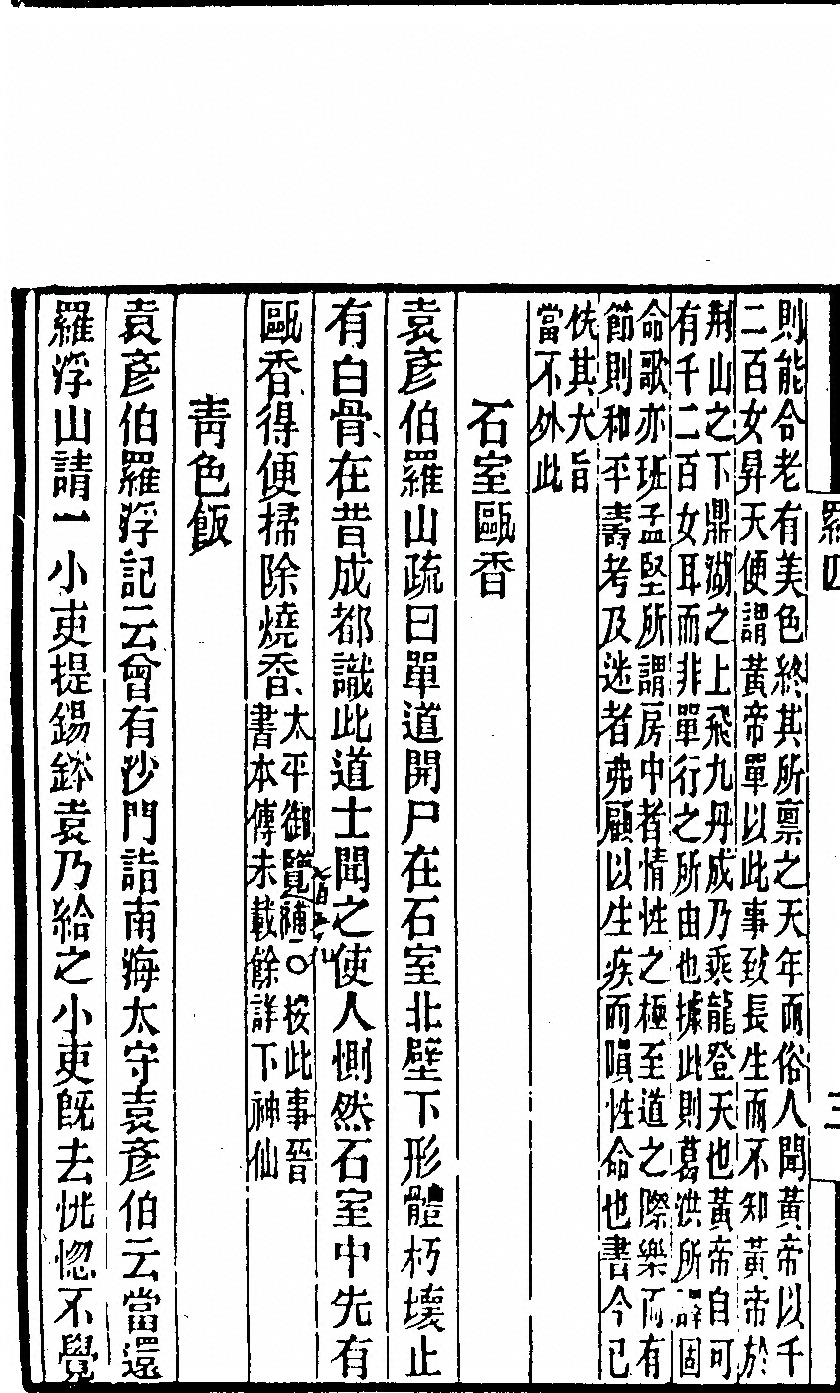 羅四
三
則能合老有美色終其所稟之天年而俗人聞黃帝以千
二百女昇天便謂黃帝單以此事致長生而不知黃帝於
荆山之下鼎湖之上飛九丹成乃乘龍登天也黃帝自可
有千二百女耳而非單行之所由也據此則葛洪所辟固
命歌亦班孟堅所謂房中者情性之極至道之際樂而有
節則和平壽考及迷者弗顧以生疾而隕性命也書今已
佚其大旨
當不外此
石室甌香
袁彥伯羅山疏曰單道開尸在石室北壁下形體朽壞止
有白骨在昔成都識此道士聞之使人惻然石室中先有
甌香得便掃除燒香
太平御覽補一〇按此事晉
書本傳未載餘詳下神仙
青色飯
袁彥伯羅浮記云曾有沙門詣南海太守袁彥伯云當還
羅浮山請一小吏提錫鉢袁乃給之小吏旣去恍惚不覺